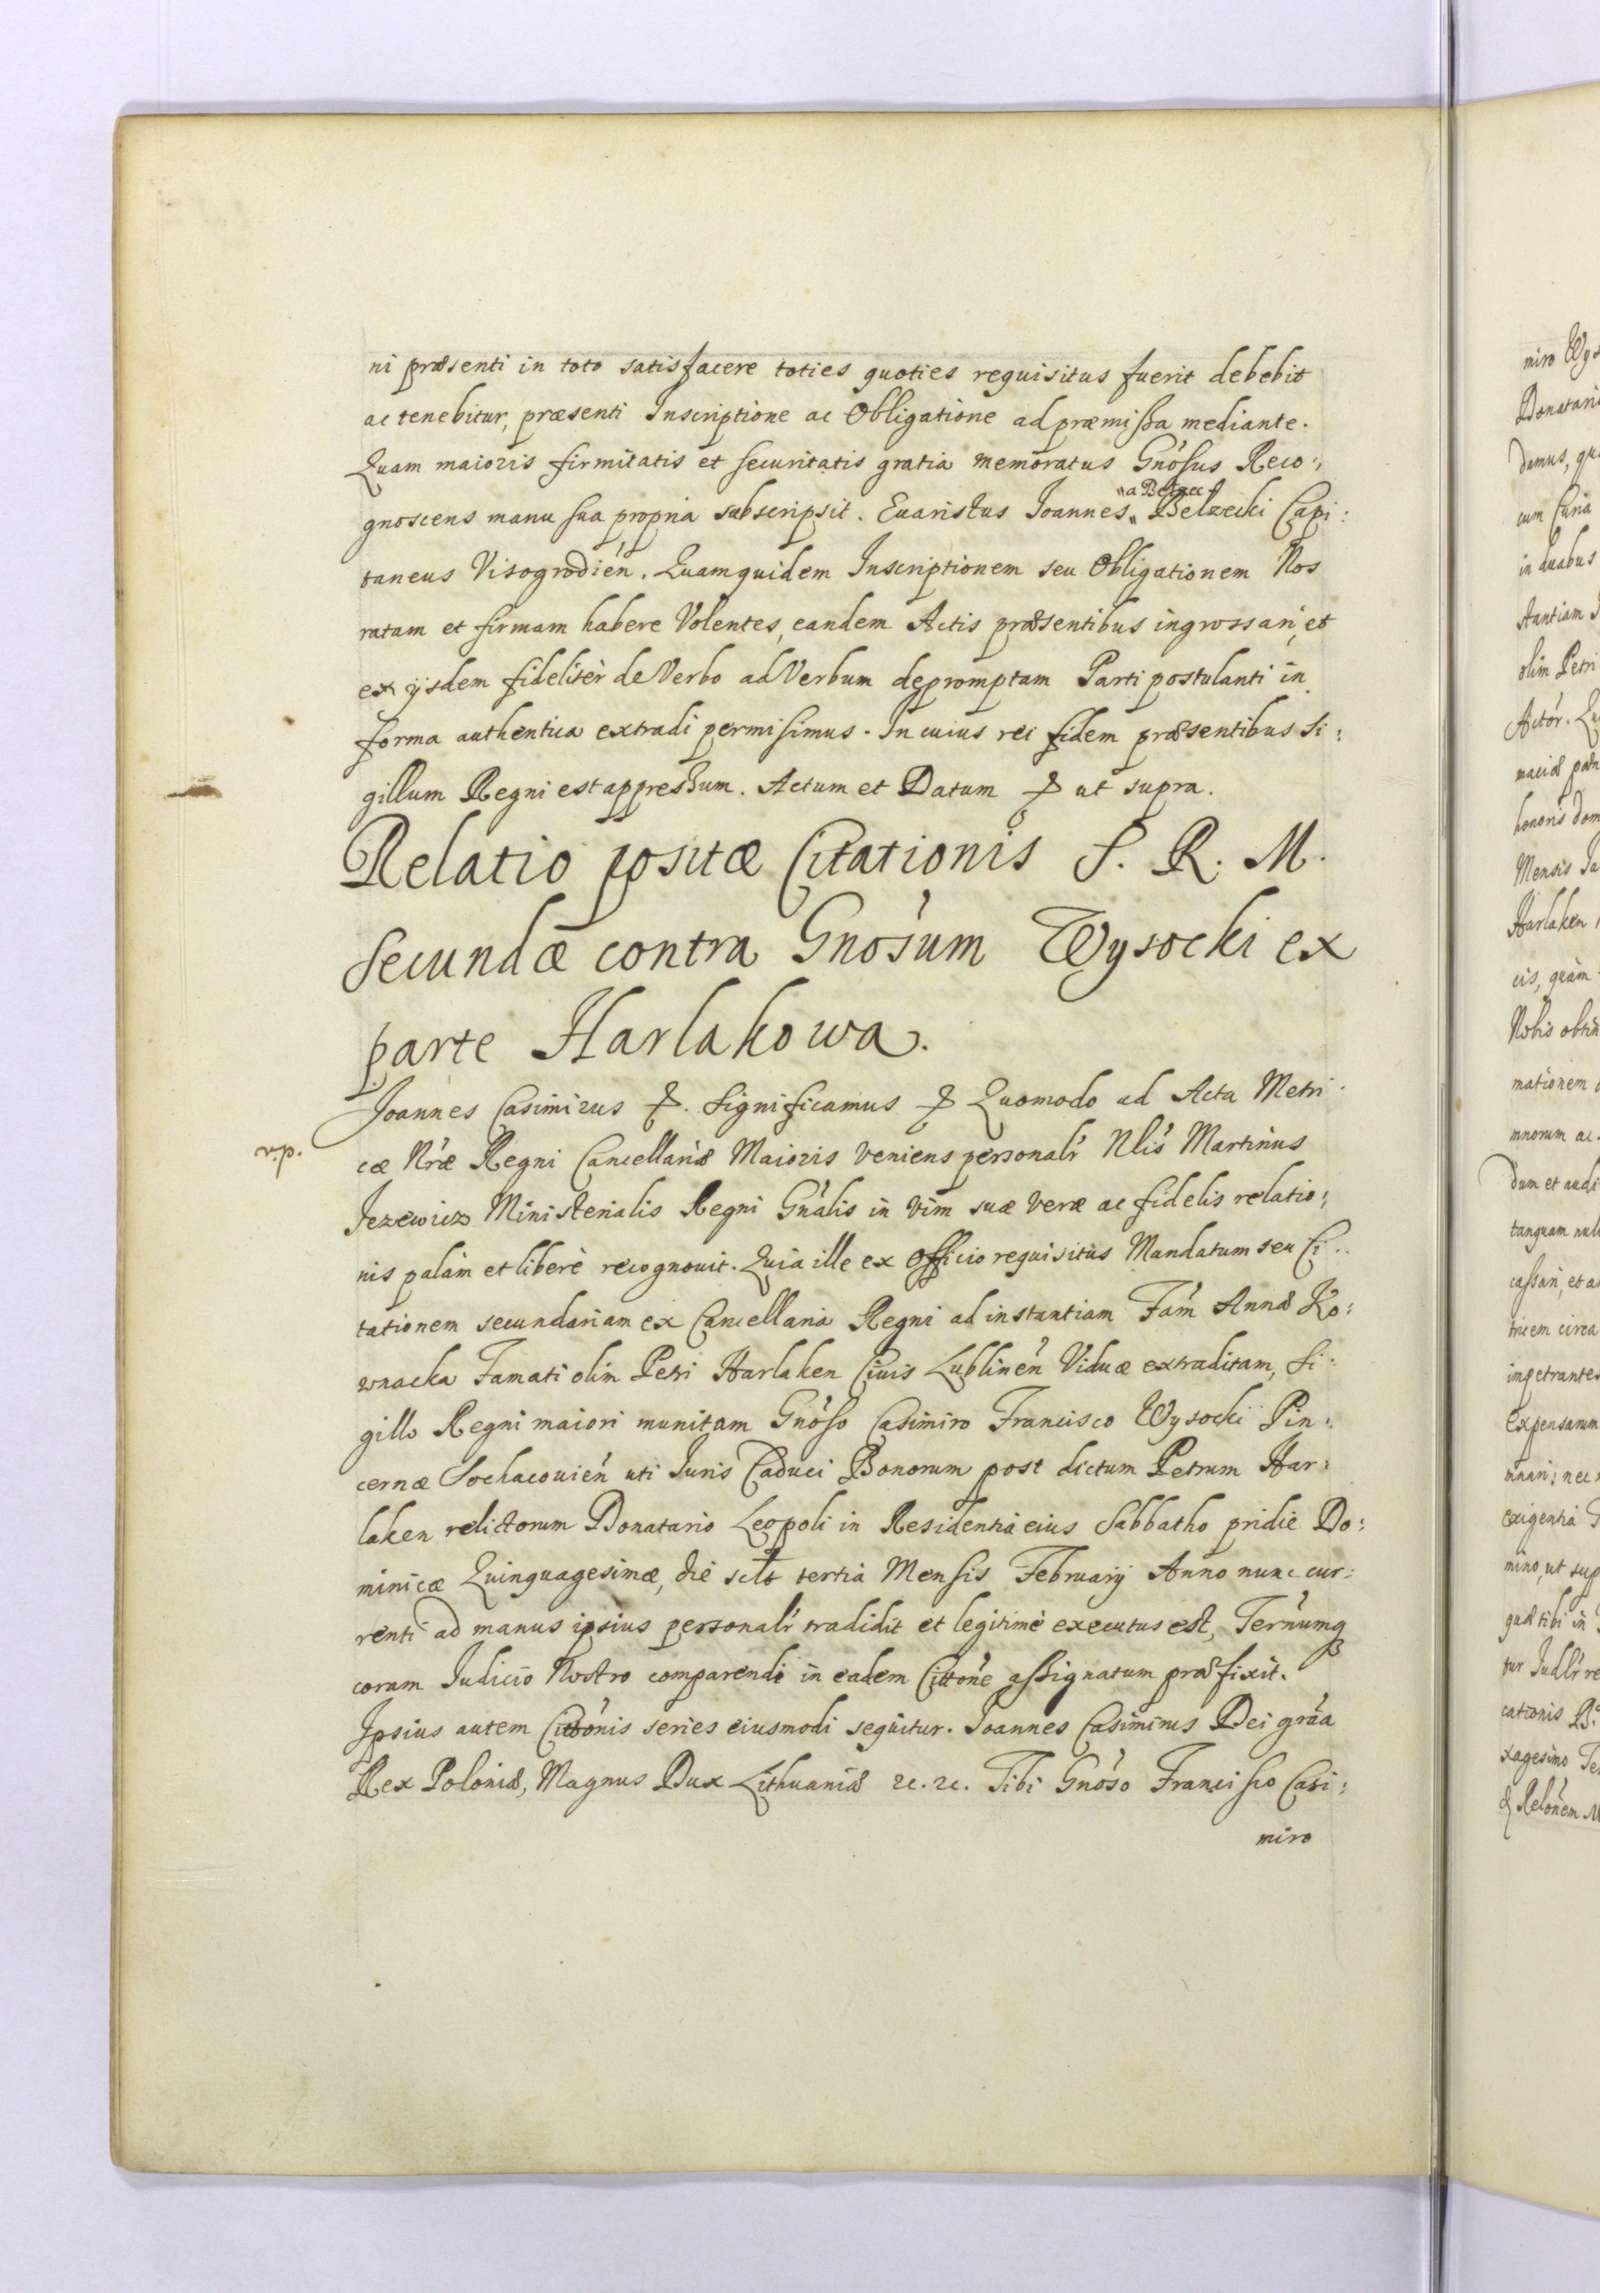 ni præsenti in toto satisfacere toties quoties requisitus fuerit debebit
ac tenebitur, præsenti Inscriptione ac Obligatione ad præmissa mediante.
Quam maioris firmitatis et securitatis gratia memoratus Gnósus Reco:,
gnoscens manu sua propria subscripsit. Euaristus Joannes
a Bełzec
Belzecki Capi:
taneus Visogrodień. Quamquidem Inscriptionem seu Obligationem Nos
ratam et firmam habere Volentes, eandem Actis præsentibus ingrossari, et
ex ijsdem fideliter de Verbo ad Verbum depromptam Parti postulanti in
forma authentica extradi permisimus. In cuius rei fidem præsentibus Si:
gillum Regni est appressum. Actum et Datum & ut supra.
Relatio positæ Citationis S. R. M.
secundæ contra Gnósum Wysocki ex
parte Harlakowa.
Joannes Casimirus &. Significamus & Quomodo ad Acta Metri:
v.p.
cæ Nŕæ Regni Cancellariæ Maioris veniens personalŕ Nlis Martinus
Jezewicz Ministerialis Regni Gnális in vim suæ veræ ac fidelis relatio:,
nis palàm et liberè recognouit. Quia ille ex officio requisitus Mandatum seu Ci:
tationem secundariam ex Cancellaria Regni ad instantiam Fam̃ Annæ Ko:
wnacka Famati olim Petri Harlaken Ciuis Lublineń Viduæ extraditam, Si:
gillo Regni maiori munitam Gnóso Casimiro Francisco Wysocki Pin:
cernæ Sochacouień uti Juris Caduci Bonorum post dictum Petrum Har:
laken relictorum Donatario Leopoli in Residentia eius Sabbatho pridie Do:
minicæ Quinquagesimæ, die sclt tertia Mensis February Anno nunc cur:
renti ad manus ipsius personalŕ tradidit et legitimè executus est, Terńumq
coram Judicio Nostro comparendi in eadem Cittóne assignatum præfixit.
Ipsius autem Cittónis series eiusmodi sequitur. Joannes Casimirus Dei gráa
Rex Poloniæ, Magnus Dux Lithuaniæ &c. &c. Tibi Gnóso Francisco Casi:
miro